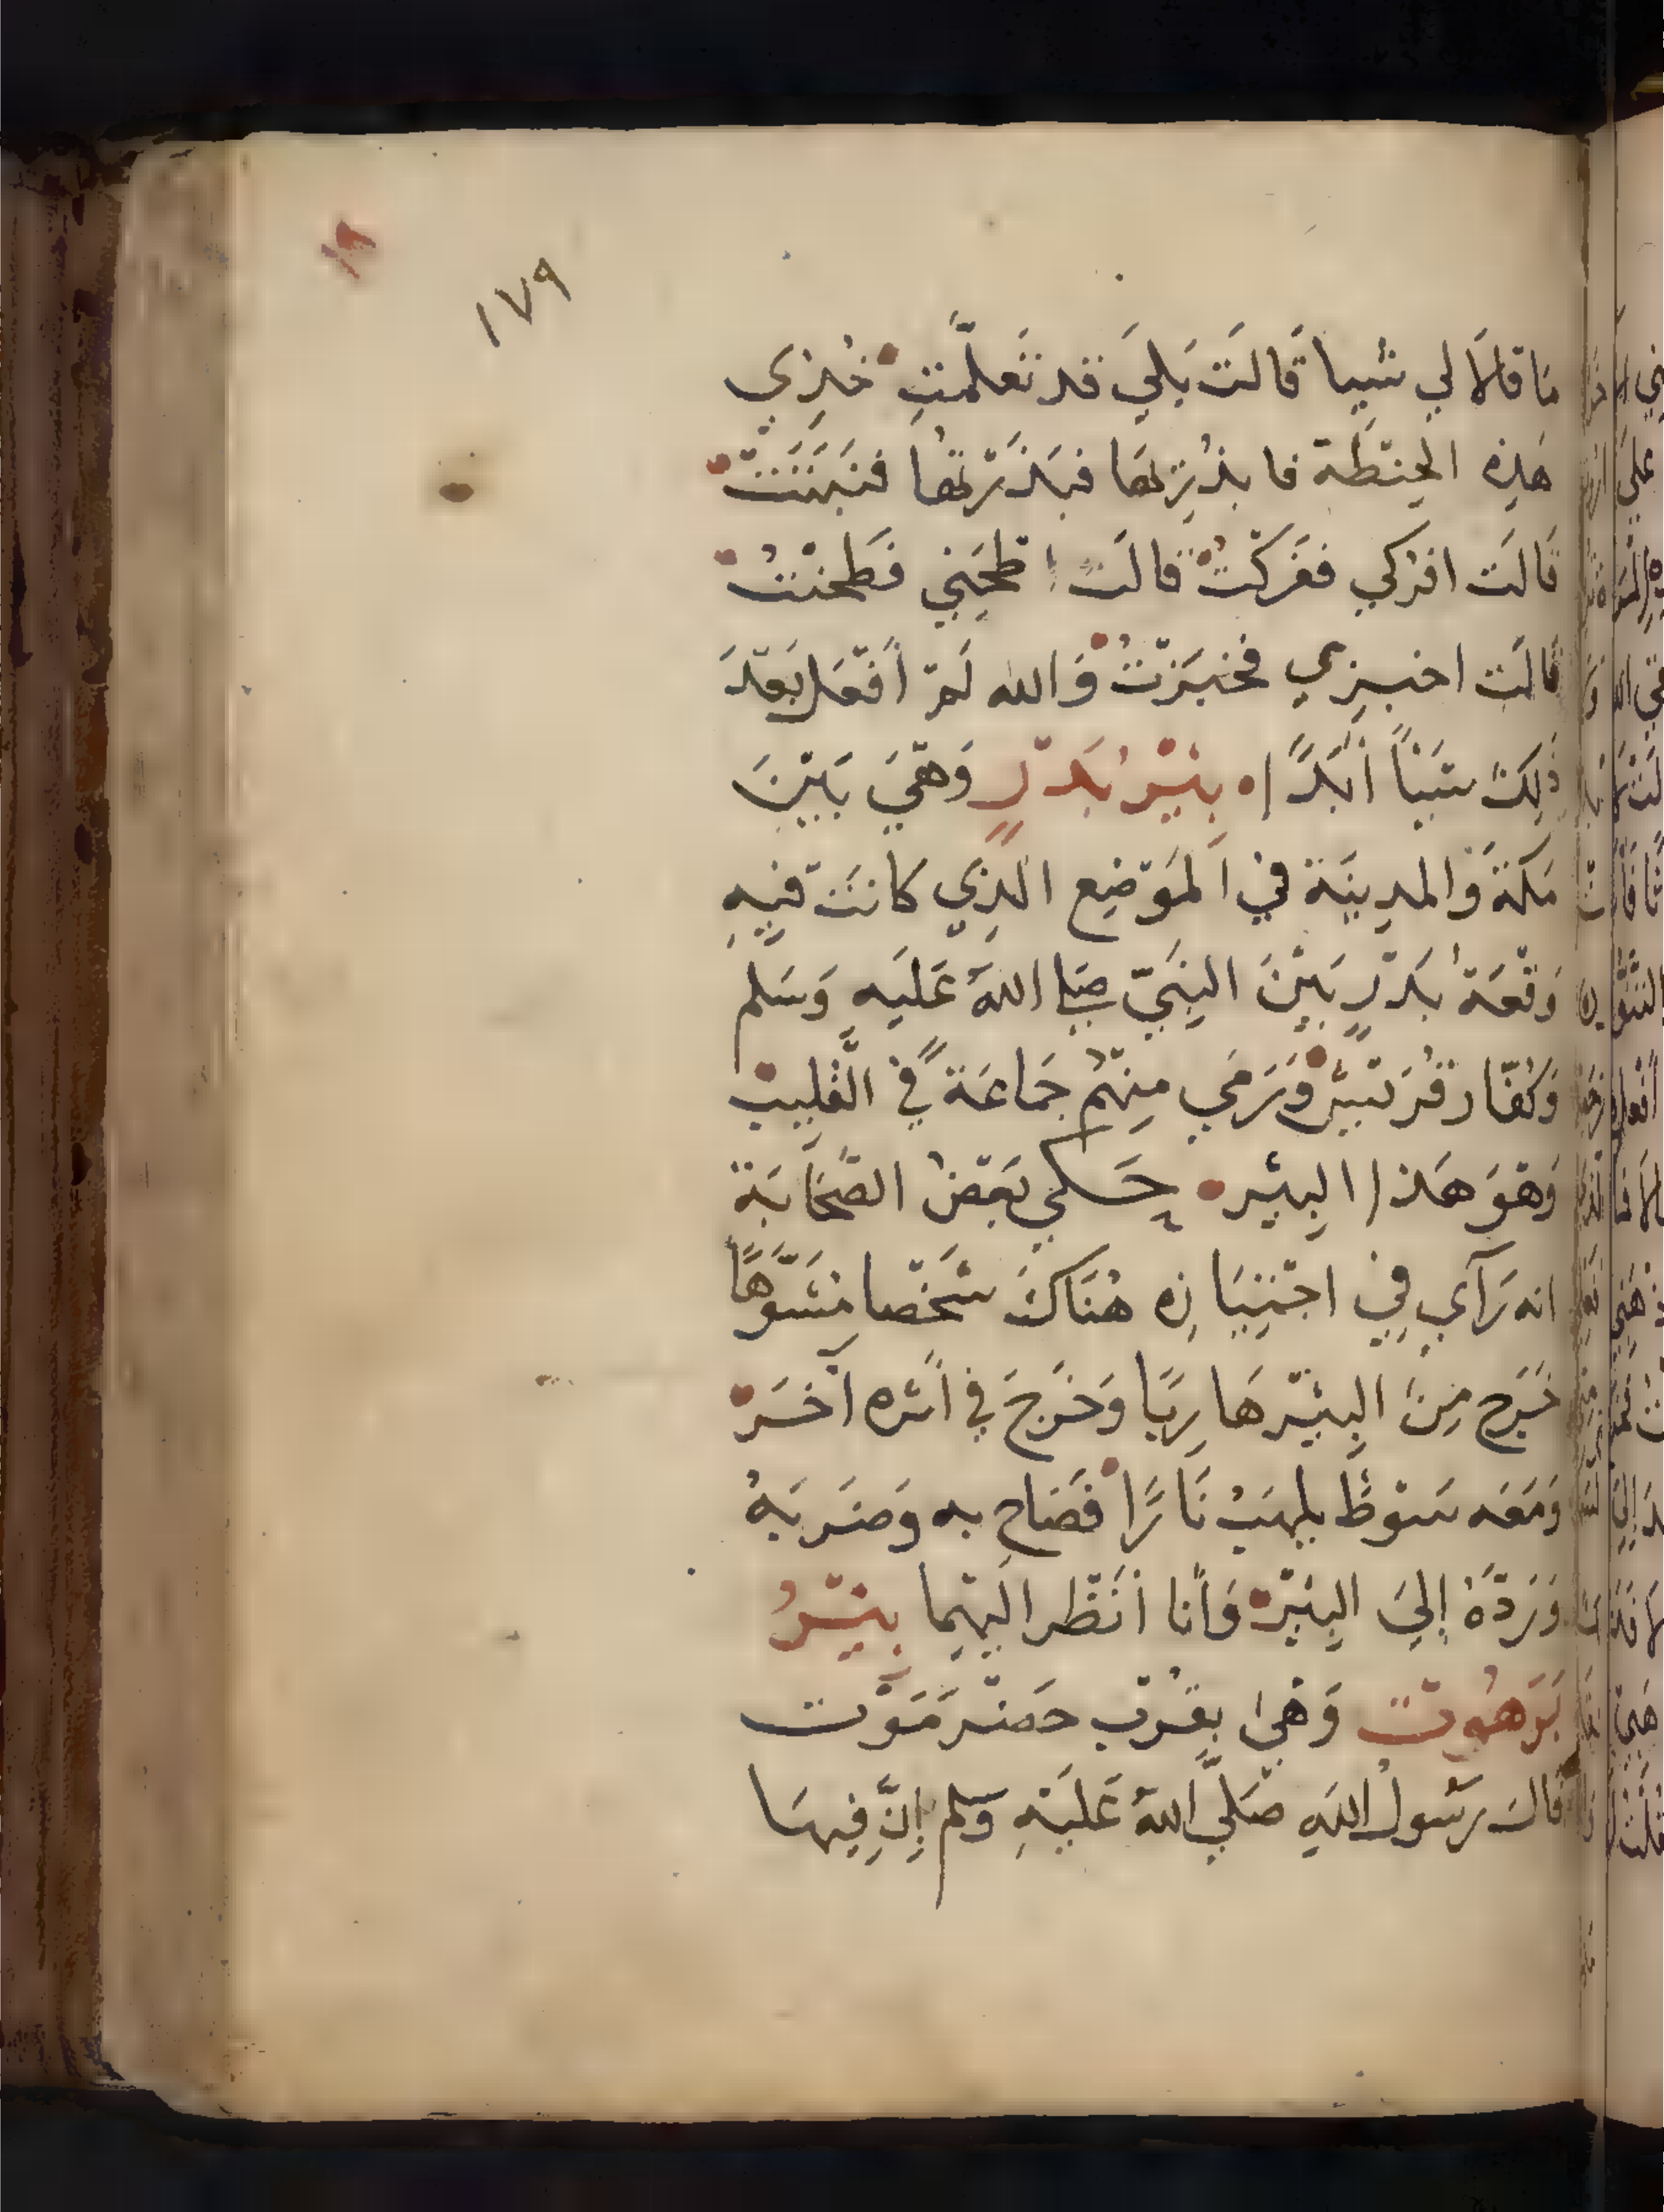 ١٧٩
مَا قالَا لي شيا قَالَت بَلَي قد تَعلّمتِ خُذِي
هَذِه الحِنطَة فابذُرِيهَا فَبَذَرْتهَا فنَبَتَتْ
قَالَت افرُكي ففَرَكْتُ قالَت اطحَنِي فَطَحَنْتُ
قَالَت اخبِزِي فخَبَزْتُ وَالله لَمْ أفْعَل بَعْدَ
ذَلِكَ شَيْئاً أَبَدًا ه بِئْرُ بَدْرٍ وَهْيَ بَيْنَ
مَكةَ وَالمدِينَة في المَوْضِع الذِي كانَتْ فيهِ
وَقْعَةُ بَدْرٍ بَيْنَ النَّبِيّ صَلى اللهُ عَلَيهِ وَسَلم
وَكُفّار قُرَيْش وَرَمَي مِنْهُمْ جَمَاعَةً في القَلِيبْ
وَهْوَ هَذا البِئْر ه حَكي بَعْضُ الصَّحَابَة
انه رَآي فِي اجْتِيَازِه هُنَاكَ شَخْصا مُشَوَّهًا
خَرَج مِنَ البِئْر هَارِبًا وَخَرَجَ في أَثَره آخَرْ
وَمَعَه سَوْطٌ يلهَبُ نَارًا فَصَاح به وَضَرَبَهُ
وَرَدَّهُ إلَيَ البِئْرِ وَأنَا أَنْظُر اليهِما بِئْرُ
بَرَهُوتْ وَهْيَ بِقُرْب حَضْرَمَوْت
قَالَ رَسُولُ اللهِ صَلَّي اللهُ عَلَيْهِ وَسلم إِنَّ فِيهَا